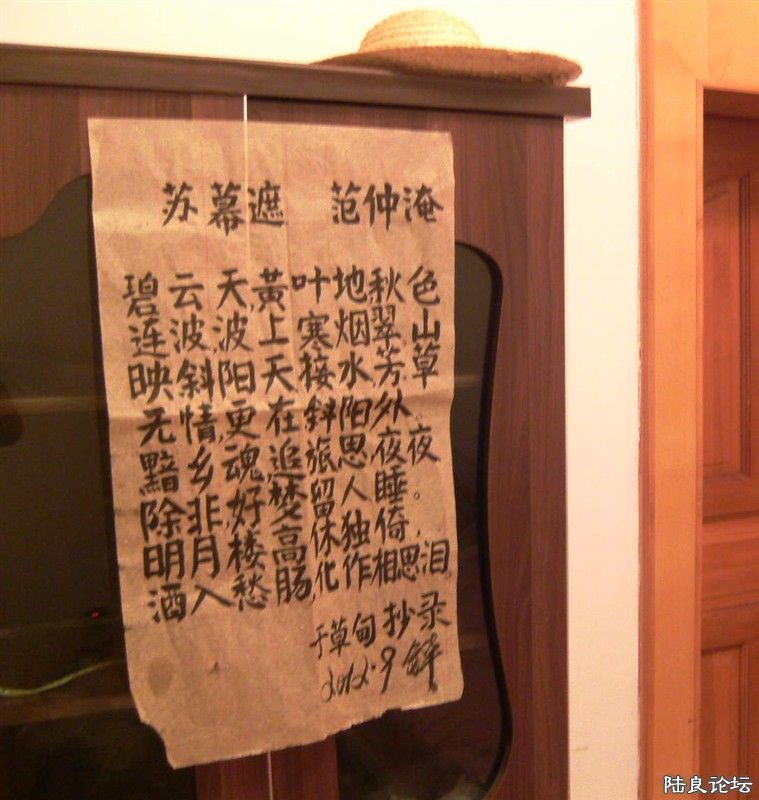 苏幕遮 范仲淹
碧云天,黄叶地,秋色
连波,波上寒烟翠,山
映斜阳天接水,芳草
无情,更在斜阳外。
黯乡魂,追旅思,夜夜
除非好梦留人睡。
明月楼高休独倚,
酒入愁肠,化作相思泪,
于草甸抄录
2012.9
陆良论坛